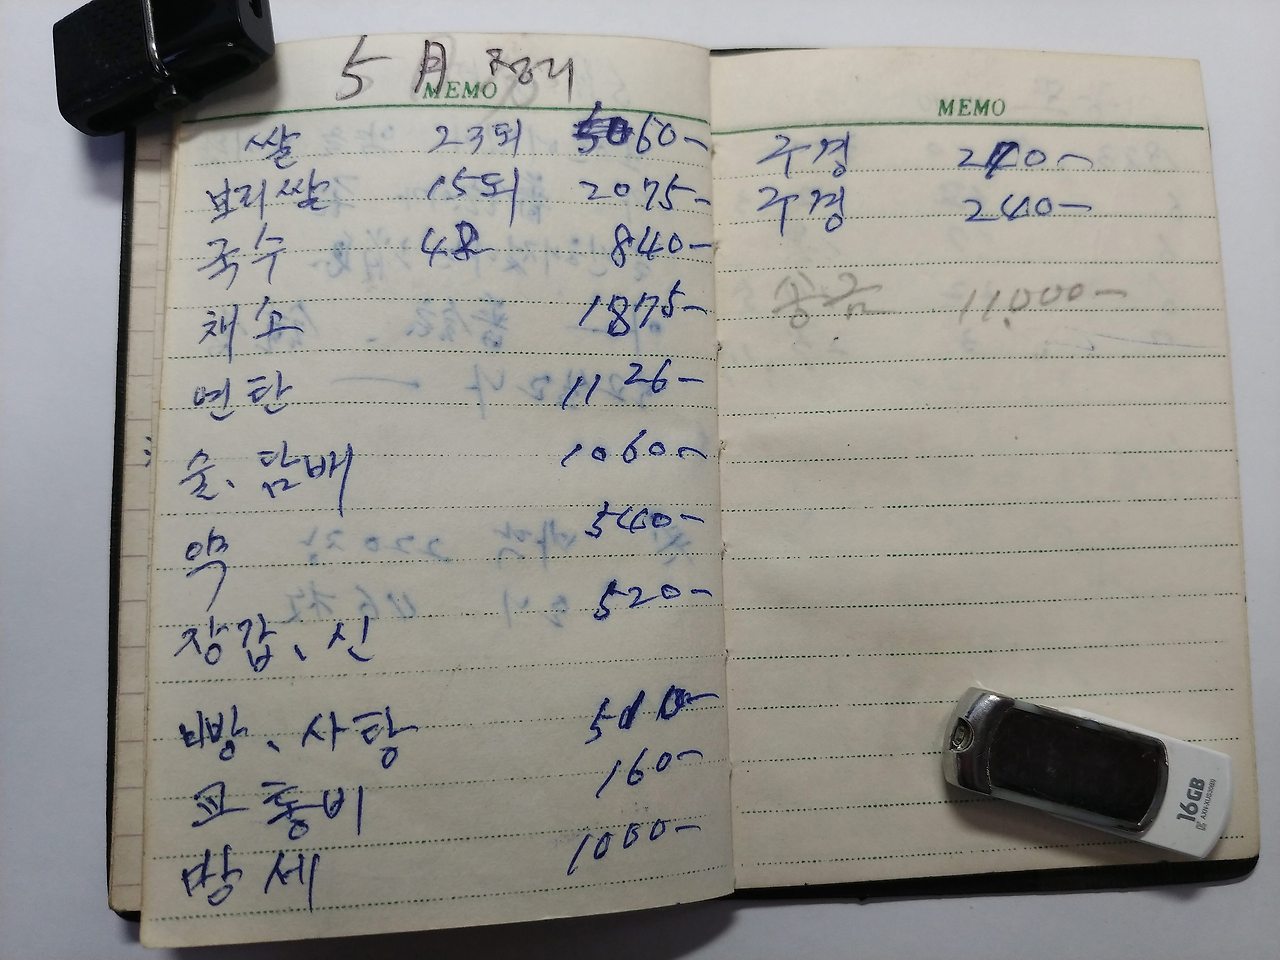 5月 정리
MEMO
쌀 23되 5060-
보리쌀 15되 2075-
국수 48 840-
채소 1875-
연탄 1126-
술, 담배 1060-
약 540-
장갑, 신 520-
빵, 사탕 510-
교통비 160-
방세 1000-
MEMO
구경 240-
구경 240-
송금 11.000-
16GB